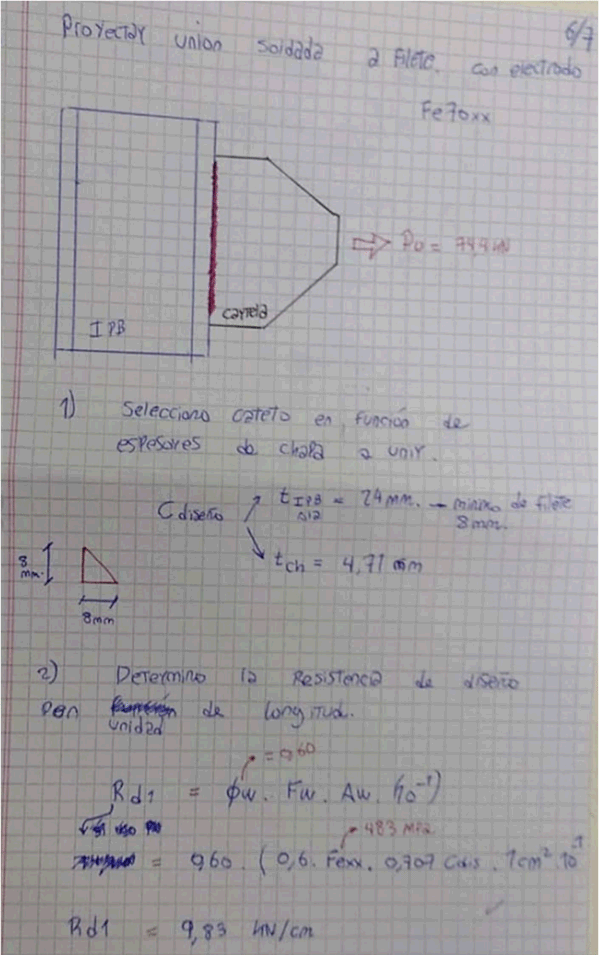 6/7
Proyectar union soldada a filete. con electrodo
Fe70xx
Pu = 744 kN
Cartela
IPB
1) Selecciono cateto en función de
espesores de chapa a unir.
C diseño
t IPB = 24 mm. — minimo de filete
ala 8mm.
tch = 4,71 mm
8 mm.
8mm
2) Determino la Resistencia de diseño
por unidad de longitud.
= 0,60
Rd1 = ϕw. Fw. Aw. (10⁻¹)
483 MPa
= 0,60. (0,6. Fexx. 0,707 Cdis. 1cm² 10⁻¹
Rd1 = 9,83 kN/cm